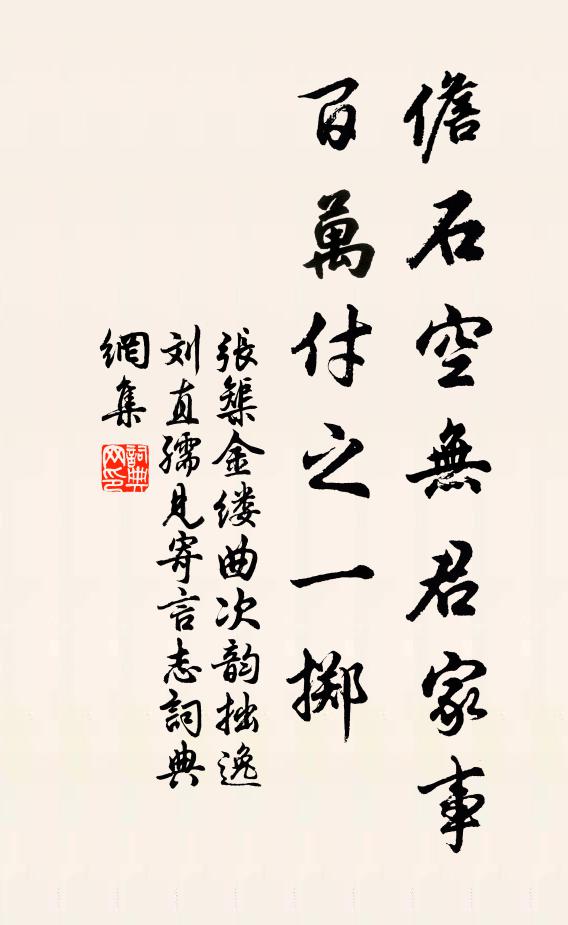 儋石空無君家事
百萬付之一擲
張榘金缕曲次韵拙逸
刘直孺見寄言志詞典
網集
詞典网印